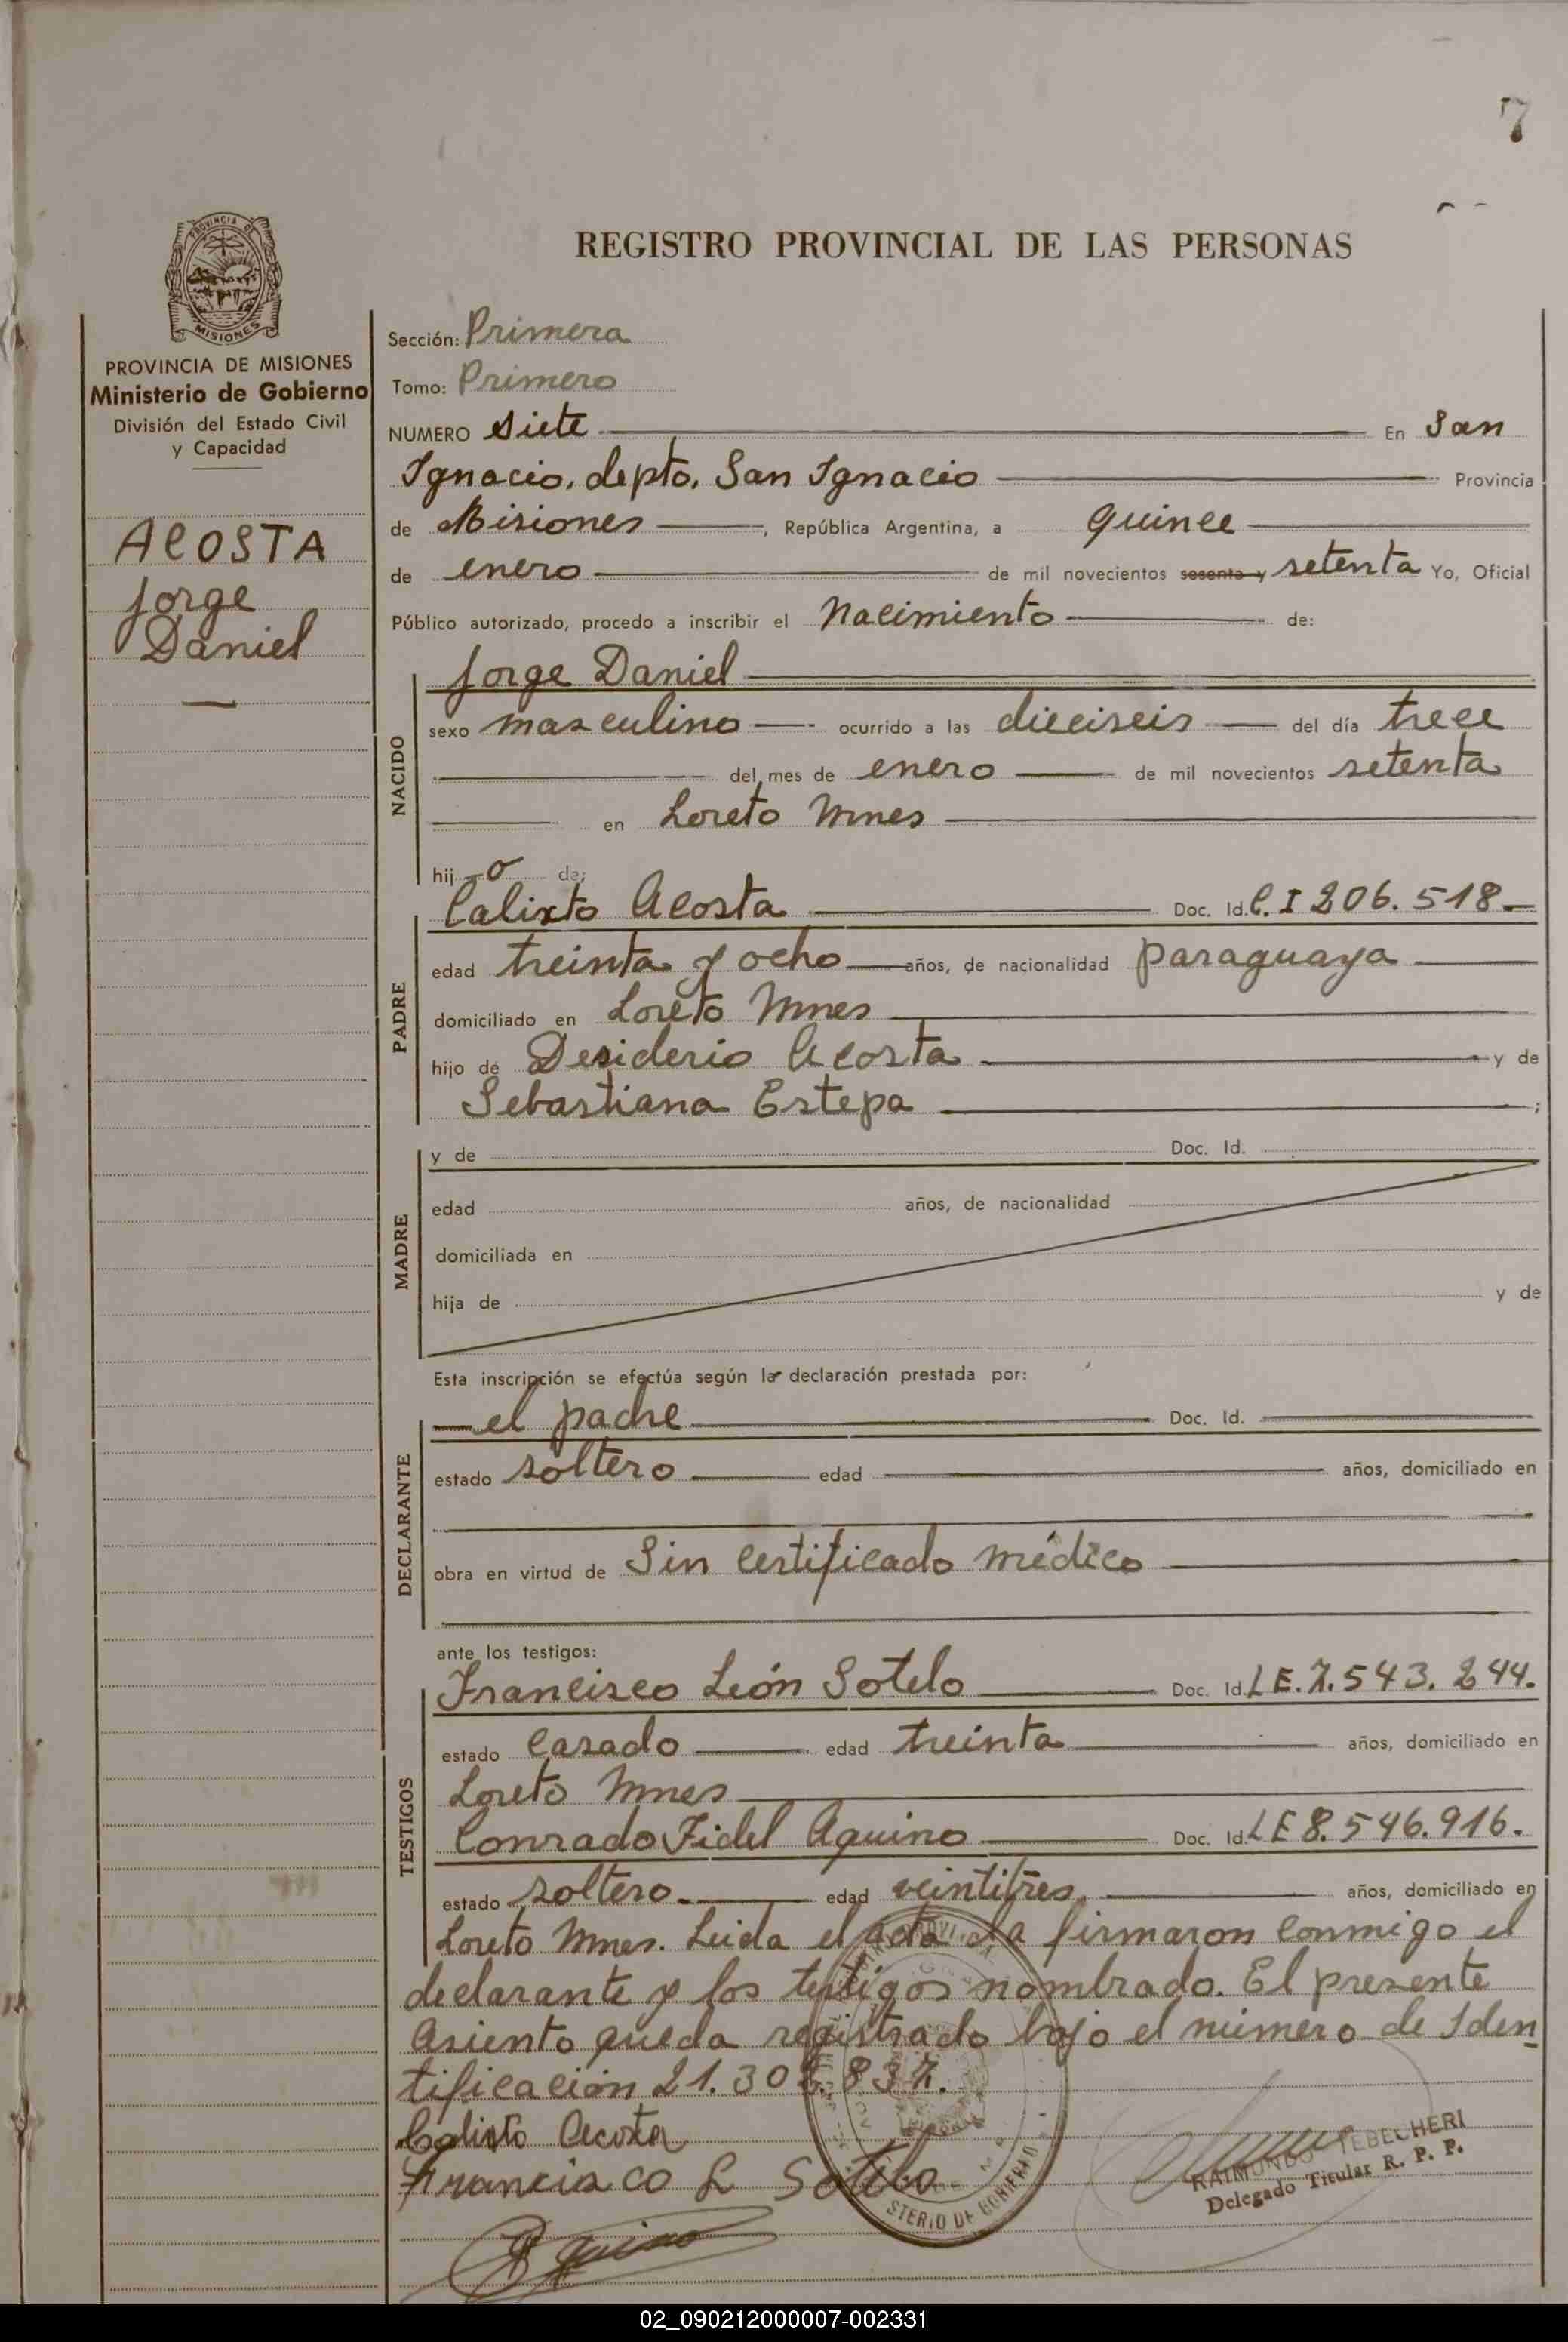 7
REGISTRO PROVINCIAL DE LAS PERSONAS
PROVINCIA DE MISIONES
PROVINCIA DE MISIONES
Ministerio de Gobierno
División del Estado Civil
y Capacidad
ACOSTA
Jorge
Daniel
Sección: Primera
Tomo: Primero
NUMERO siete En San
Ignacio, depto. San Ignacio Provincia
de Misiones, República Argentina, a quince
de enero de mil novecientos sesenta y setenta Yo, Oficial
Público autorizado, procedo a inscribir el Nacimiento de:
NACIDO
Jorge Daniel
sexo masculino ocurrido a las dieciseis del día trece
del mes de enero de mil novecientos setenta
en Loreto Mnes
hij o de:
PADRE
Calixto Acosta Doc. Id. C.I 206.518.
edad treinta y ocho años, de nacionalidad paraguaya
domiciliado en Loreto Mnes
hijo de Desiderio Acosta y de
Sebastiana Estepa ;
MADRE
y de Doc. Id.
edad años, de nacionalidad
domiciliada en
hija de y de
Esta inscripción se efectúa según la declaración prestada por:
DECLARANTE
el padre Doc. Id.
estado soltero edad años, domiciliado en
obra en virtud de Sin certificado médico
ante los testigos:
TESTIGOS
Francisco León Sotelo Doc. Id. LE. 7.543.244.
estado casado edad treinta años, domiciliado en
Loreto Mnes
Conrado Fidel Aquino Doc. Id. LE 8.546.916.
estado soltero. edad veintitres. años, domiciliado en
Loreto Mnes. Leida el acta la firmaron conmigo el
declarante y los testigos nombrado. El presente
asiento queda registrado bajo el número de Iden
tificación 21.30 .837.
Calixto Acosta
Francisco L Sotelo
Aquino
STERIO DE GOBIERNO
RAIMUNDO TEBECHERI
Delegado Titular R. P. P.
02_090212000007-002331